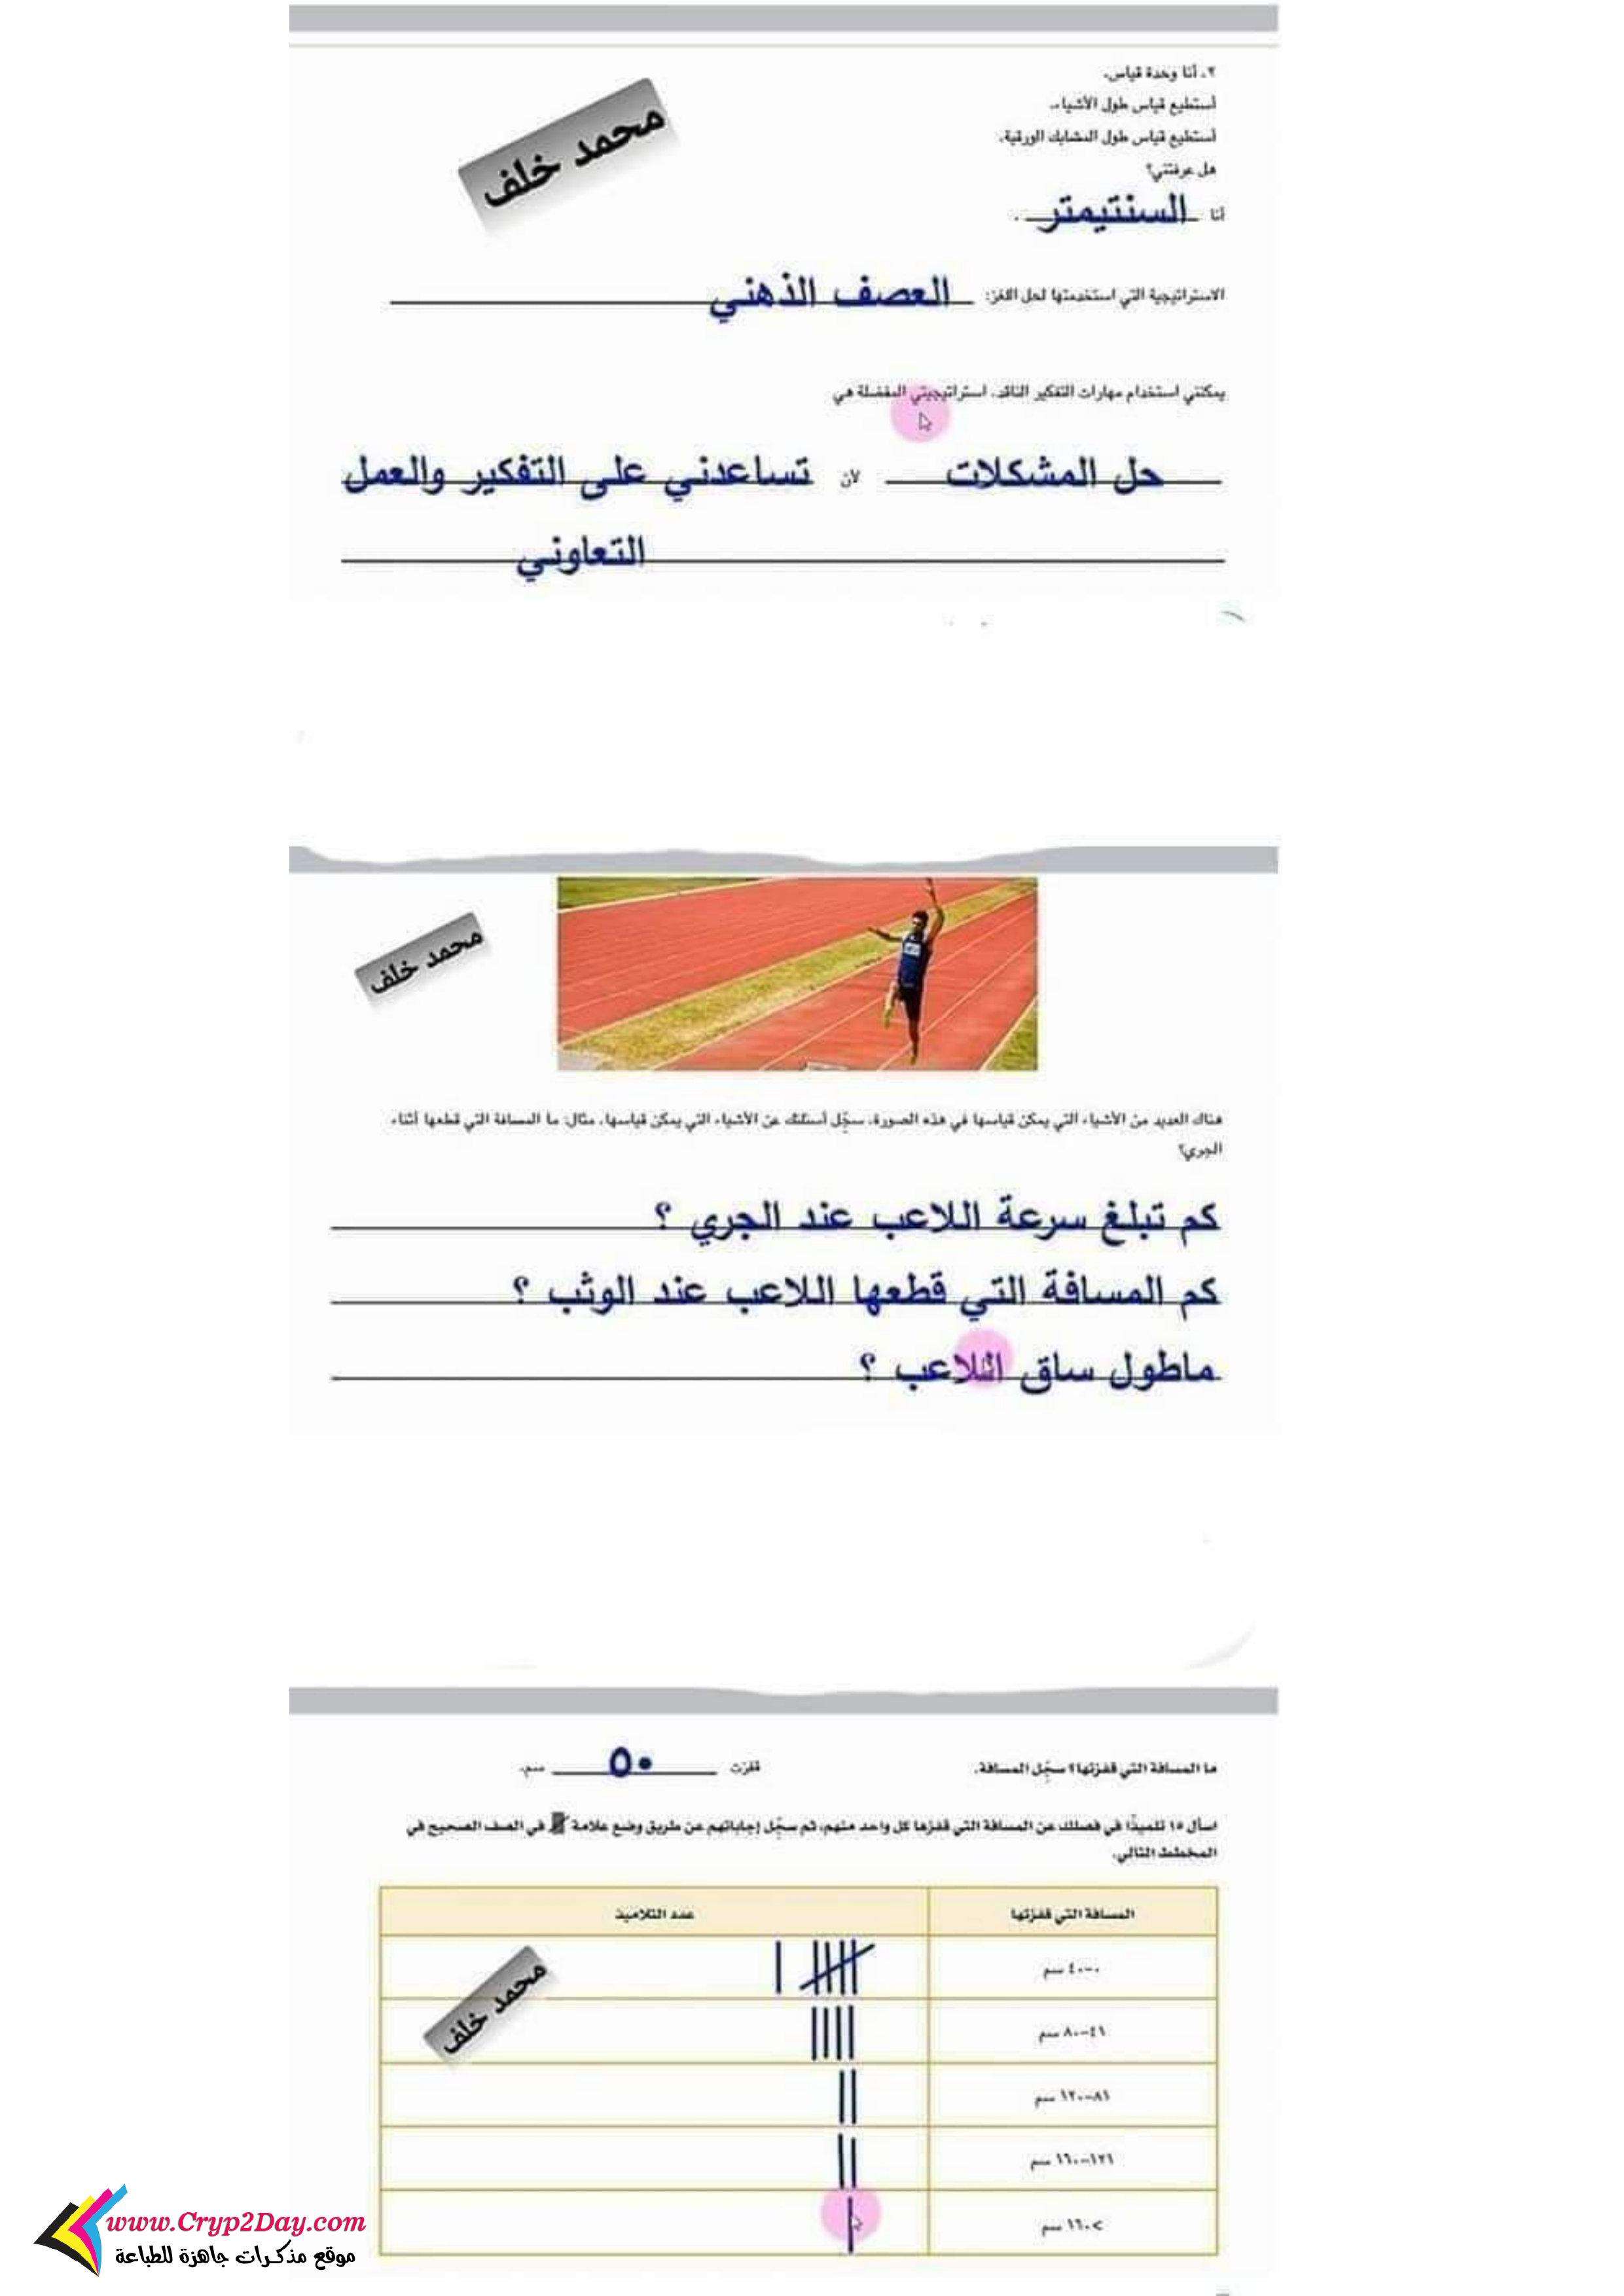 ٢. أنا وحدة قياس.
أستطيع قياس طول الأشياء.
أستطيع قياس طول المشابك الورقية.
هل عرفتني؟
محمد خلف
أنا السنتيمتر .
الاستراتيجية التي استخدمتها لحل اللغز: العصف الذهني
يمكنني استخدام مهارات التفكير الناقد. استراتيجيتي المفضلة هي
حل المشكلات لأن تساعدني على التفكير والعمل
التعاوني
محمد خلف
هناك العديد من الأشياء التي يمكن قياسها في هذه الصورة. سجّل أسئلتك عن الأشياء التي يمكن قياسها. مثال: ما المسافة التي قطعها أثناء
الجري؟
كم تبلغ سرعة اللاعب عند الجري ؟
كم المسافة التي قطعها اللاعب عند الوثب ؟
ماطول ساق اللاعب ؟
ما المسافة التي قفزتها؟ سجّل المسافة. قفزت ٥٠ سم.
اسأل ١٥ تلميذًا في فصلك عن المسافة التي قفزها كل واحد منهم، ثم سجّل إجاباتهم عن طريق وضع علامة في الصف الصحيح في
المخطط التالي.
المسافة التي قفزتها عدد التلاميذ
٠-٤٠ سم
محمد خلف
٤١-٨٠ سم
٨١-١٢٠ سم
١٢١-١٦٠ سم
>١٦٠ سم
www.Cryp2Day.com
موقع مذكرات جاهزة للطباعة